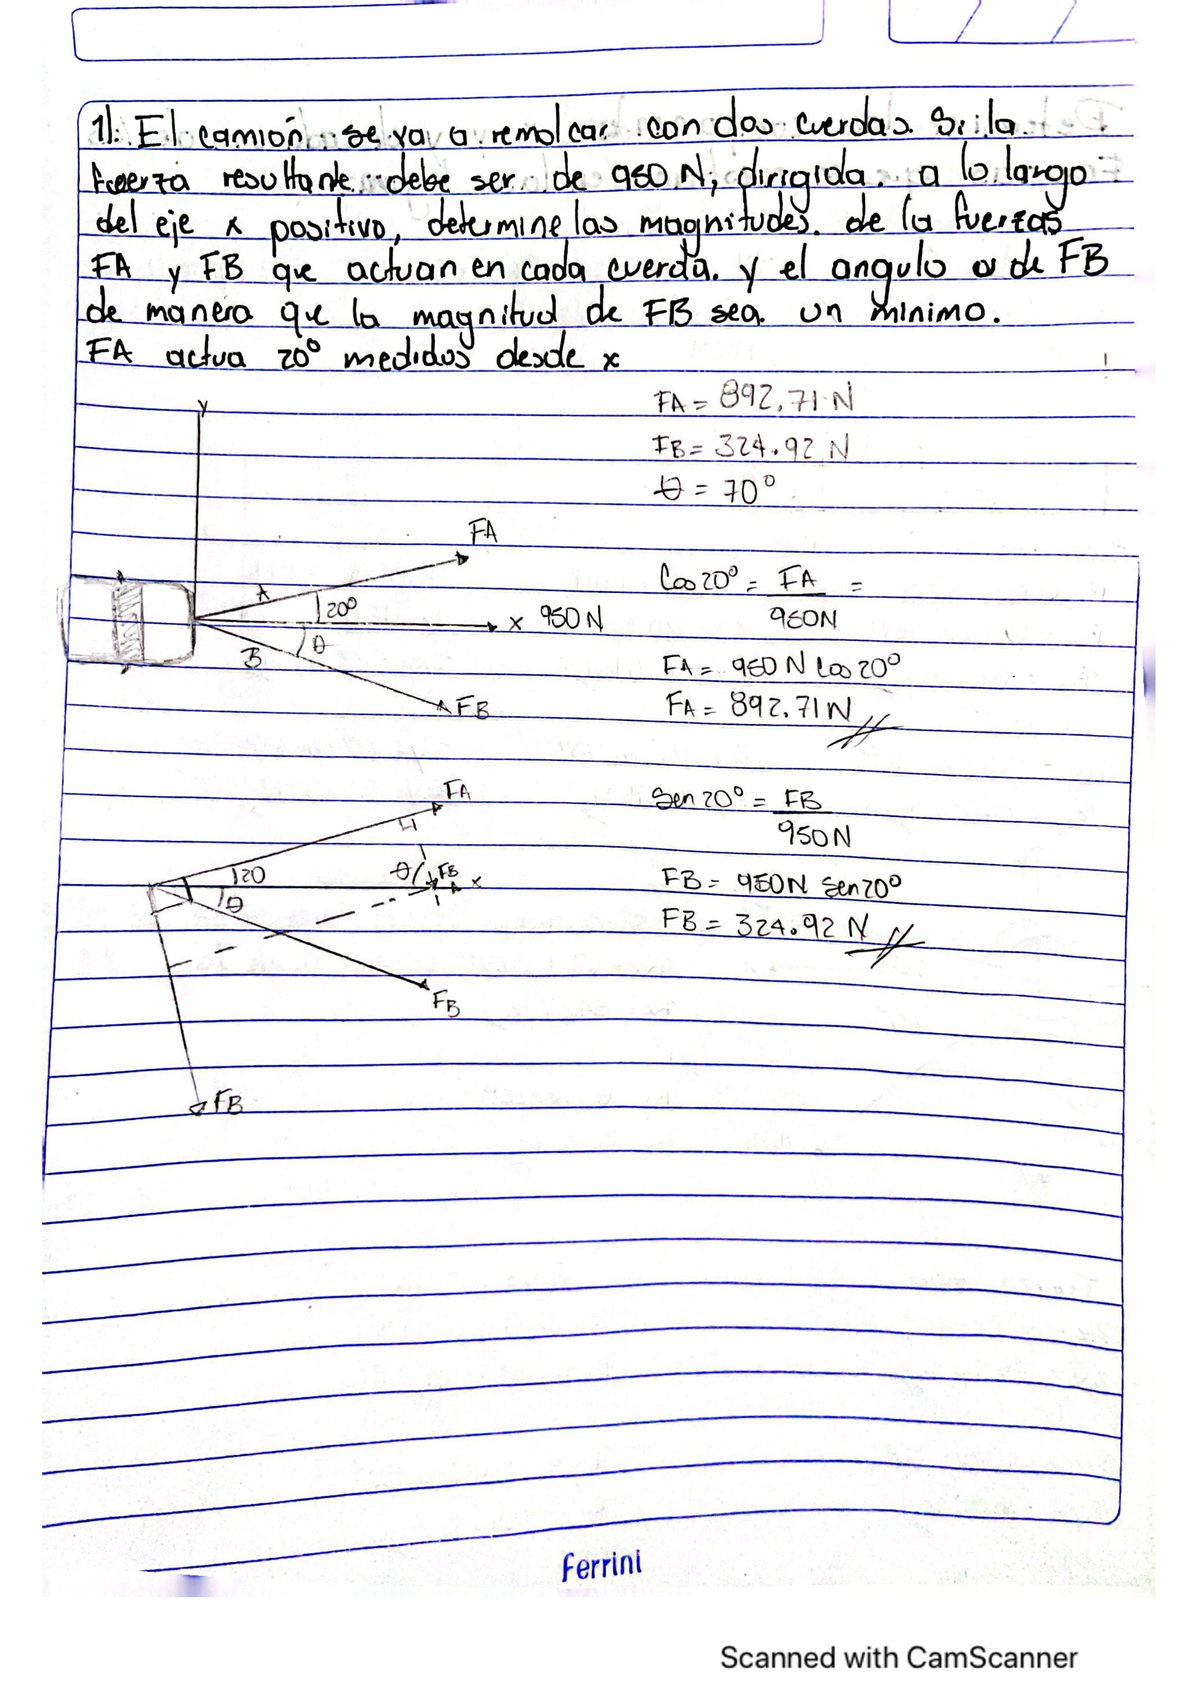 1). El camión se va a remolcar con dos cuerdas. Si la
fuerza resultante debe ser de 950 N, dirigida a lo largo
del eje x positivo, determine las magnitudes de la fuerzas
FA y FB que actuan en cada cuerda. y el angulo θ de FB
de manera que la magnitud de FB sea un minimo.
FA actua 20° medidos desde x
FA = 892,71 N
FB = 324.92 N
θ = 70°
y
FA
A
20°
x 950 N
θ
B
FB
Cos 20° = FA =
950N
FA = 950 N Cos 20°
FA = 892,71N
FA
20
θ
θ
FB
x
FB
FB
Sen 20° = FB
950N
FB = 950N Sen 20°
FB = 324.92 N
Ferrini
Scanned with CamScanner